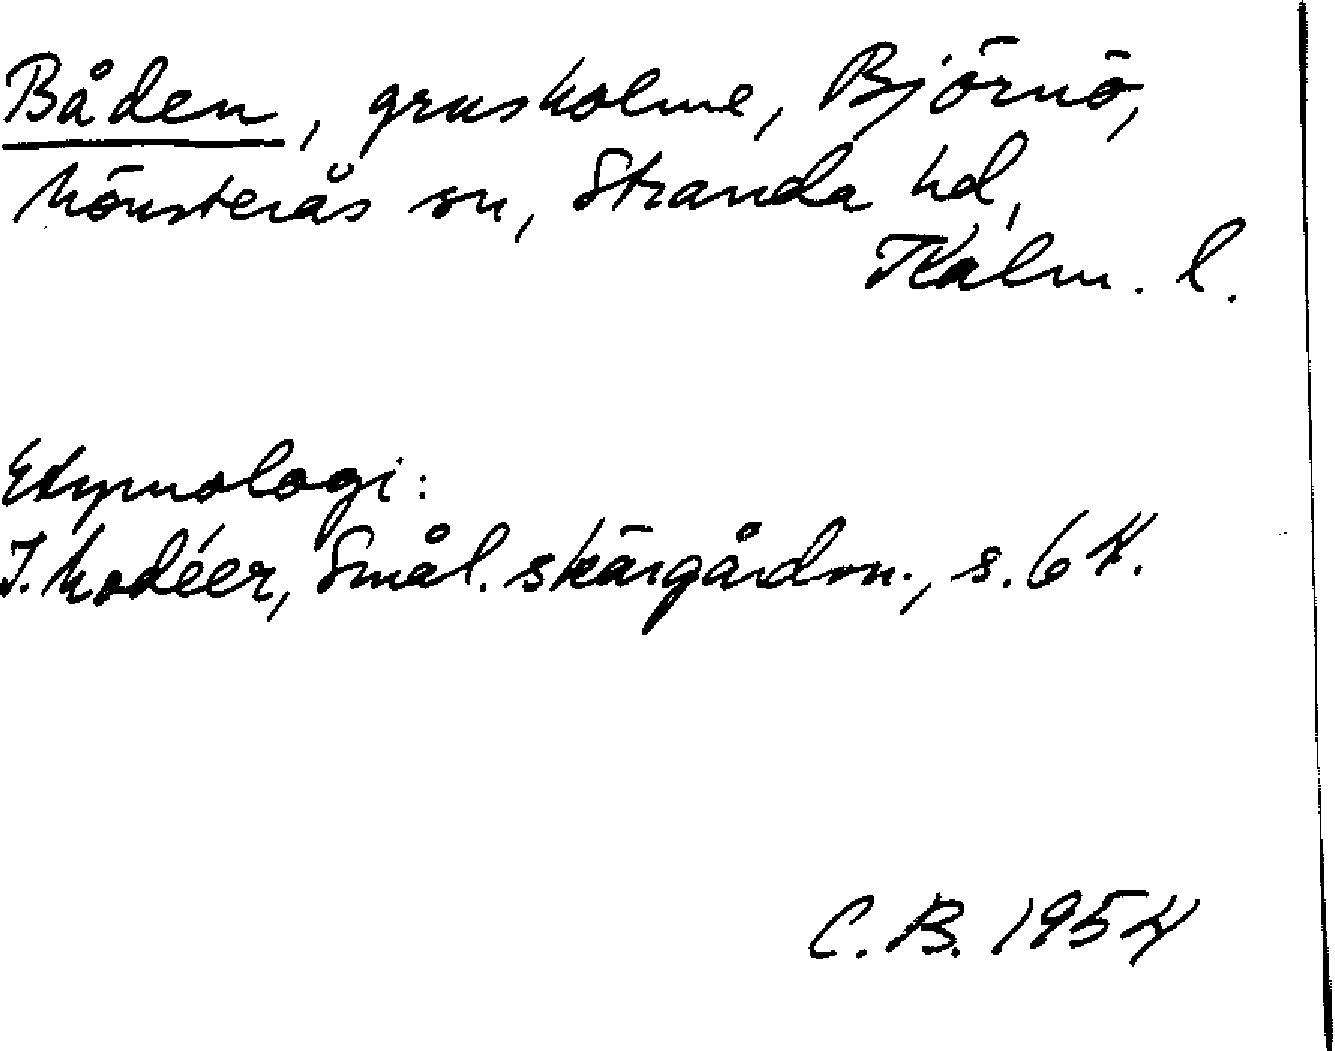 Båden, grusholme, Björnö,
Mönsterås sn, Stranda hd,
Kalm. l.
Etymologi:
I. Modéer, Smål. skärgårdsn., s. 64.
C. B. 1954